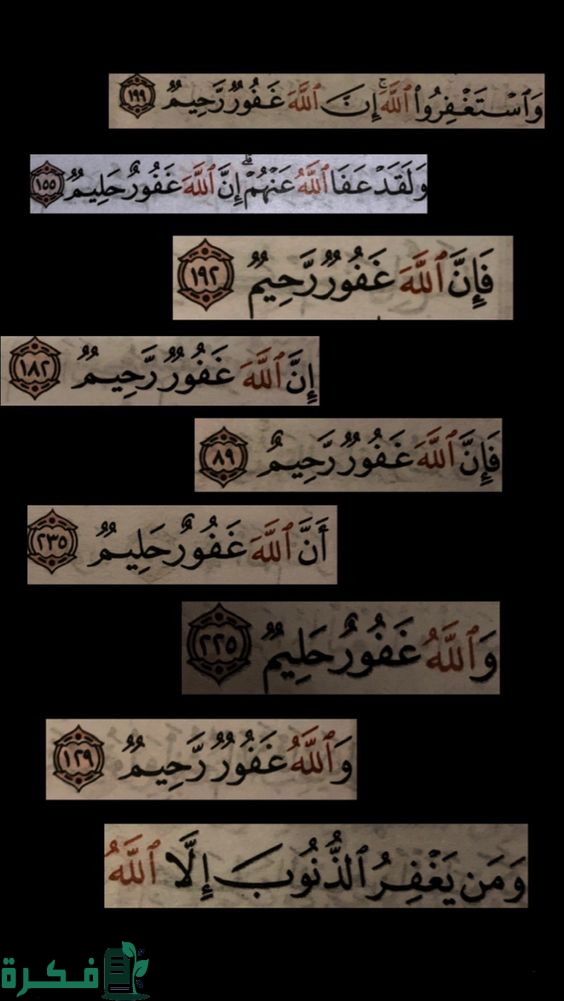 وَٱسْتَغْفِرُوا۟ ٱللَّهَ ۚ إِنَّ ٱللَّهَ غَفُورٌ رَّحِيمٌ ١٩٩
وَلَقَدْ عَفَا ٱللَّهُ عَنْهُمْ ۗ إِنَّ ٱللَّهَ غَفُورٌ حَلِيمٌ ١٥٥
فَإِنَّ ٱللَّهَ غَفُورٌ رَّحِيمٌ ١٩٢
إِنَّ ٱللَّهَ غَفُورٌ رَّحِيمٌ ١٨٢
فَإِنَّ ٱللَّهَ غَفُورٌ رَّحِيمٌ ٨٩
أَنَّ ٱللَّهَ غَفُورٌ حَلِيمٌ ٢٣٥
وَٱللَّهُ غَفُورٌ حَلِيمٌ ٢٢٥
وَٱللَّهُ غَفُورٌ رَّحِيمٌ ١٢٩
وَمَن يَغْفِرُ ٱلذُّنُوبَ إِلَّا ٱللَّهُ
فكرة